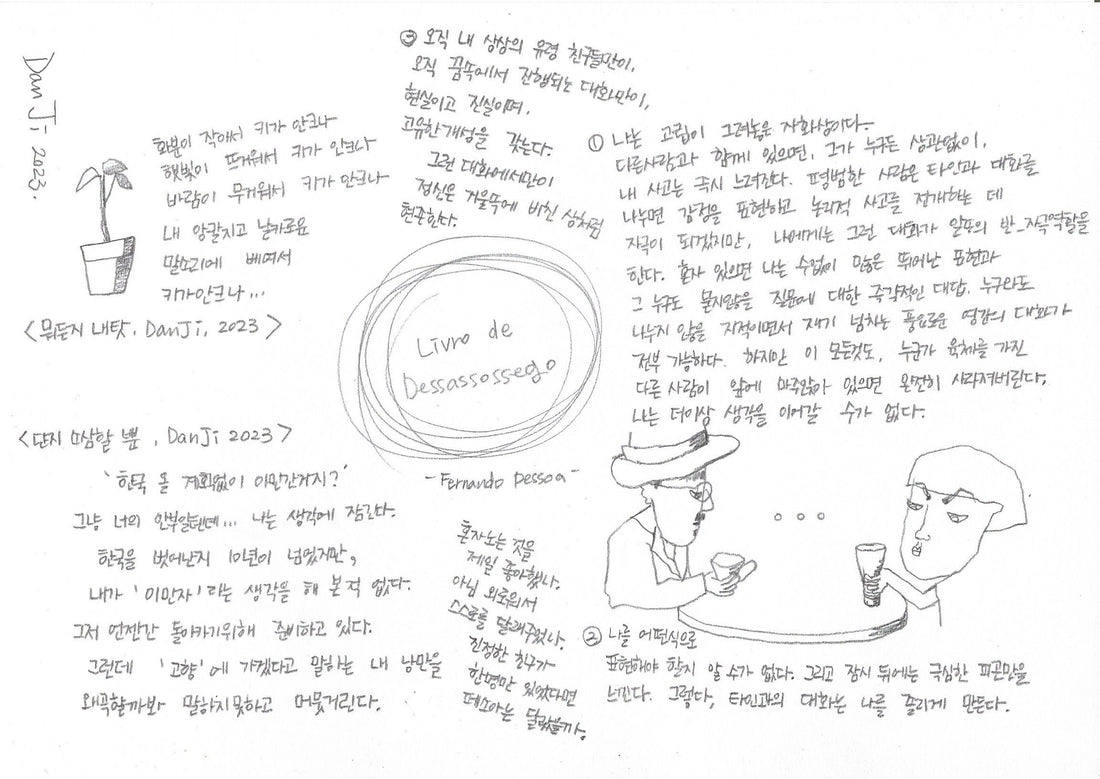 DanJi 2023.
화분이 작아서 키가 안크나
햇빛이 뜨거워서 키가 안크나
바람이 무거워서 키가 안크나
내 앙칼지고 날카로운
말소리에 베여서
키가안크나...
<뭐든지 내탓, DanJi, 2023>
③ 오직 내 상상의 유령 친구들만이,
오직 꿈뚝에서 진행되는 대화만이,
현실이고 진실이며,
고유한개성을 갖는다.
그런 대화에서만이
정신은 거울뚝에 비친 상처럼
현존한다.
① 나는 고립이 그려놓은 자화상이다.
다른사람과 함께 있으면, 그가 누구든 상관없이,
내 사고는 즉시 느려진다. 평범한 사람은 타인과 대화를
나누면 감정을 표현하고 논리적 사고를 전개하는 데
자극이 되겠지만, 나에게는 그런 대화가 일포의 반_자극역할을
한다. 혼자 있으면 나는 수없이 많은 뛰어난 표현과
그 누구도 묻지않을 질문에 대한 즉각적인 대답, 누구와도
나누지 않을 지적이면서 재기 넘치는 풍요로운 영감의 대화가
전부 가능하다. 하지만 이 모든것도, 누군가 육체를 가진
다른 사람이 앞에 마주앉아 있으면 온전히 사라져버린다.
나는 더이상 생각을 이어갈 수가 없다.
Livro de
Dessassossego
-Fernando Pessoa-
<단지 따삼할 뿐, DanJi 2023>
'한국 올 계획없이 이만간거지?'
그냥 너의 안부일텐데... 나는 생각에 잠긴다.
한국을 벗어난지 10년이 넘었지만,
내가 '이민자'라는 생각을 해 본적 없다.
그저 언젠간 돌아가기위해 준비하고 있다.
그런데 '고향'에 가겠다고 말하는 내 낭만을
왜곡할까봐 말하지못하고 머뭇거린다.
혼자노는 것을
제일 좋아했나.
아님 외로워서
스스로를 달래주었나.
진정한 친구가
한명만 있었다면
페소아는 달랐을까.
② 나를 어떤식으로
표현해야 할지 알 수가 없다. 그리고 잠시 뒤에는 극심한 피곤만을
느낀다. 그렇다, 타인과의 대화는 나를 졸리게 만든다.